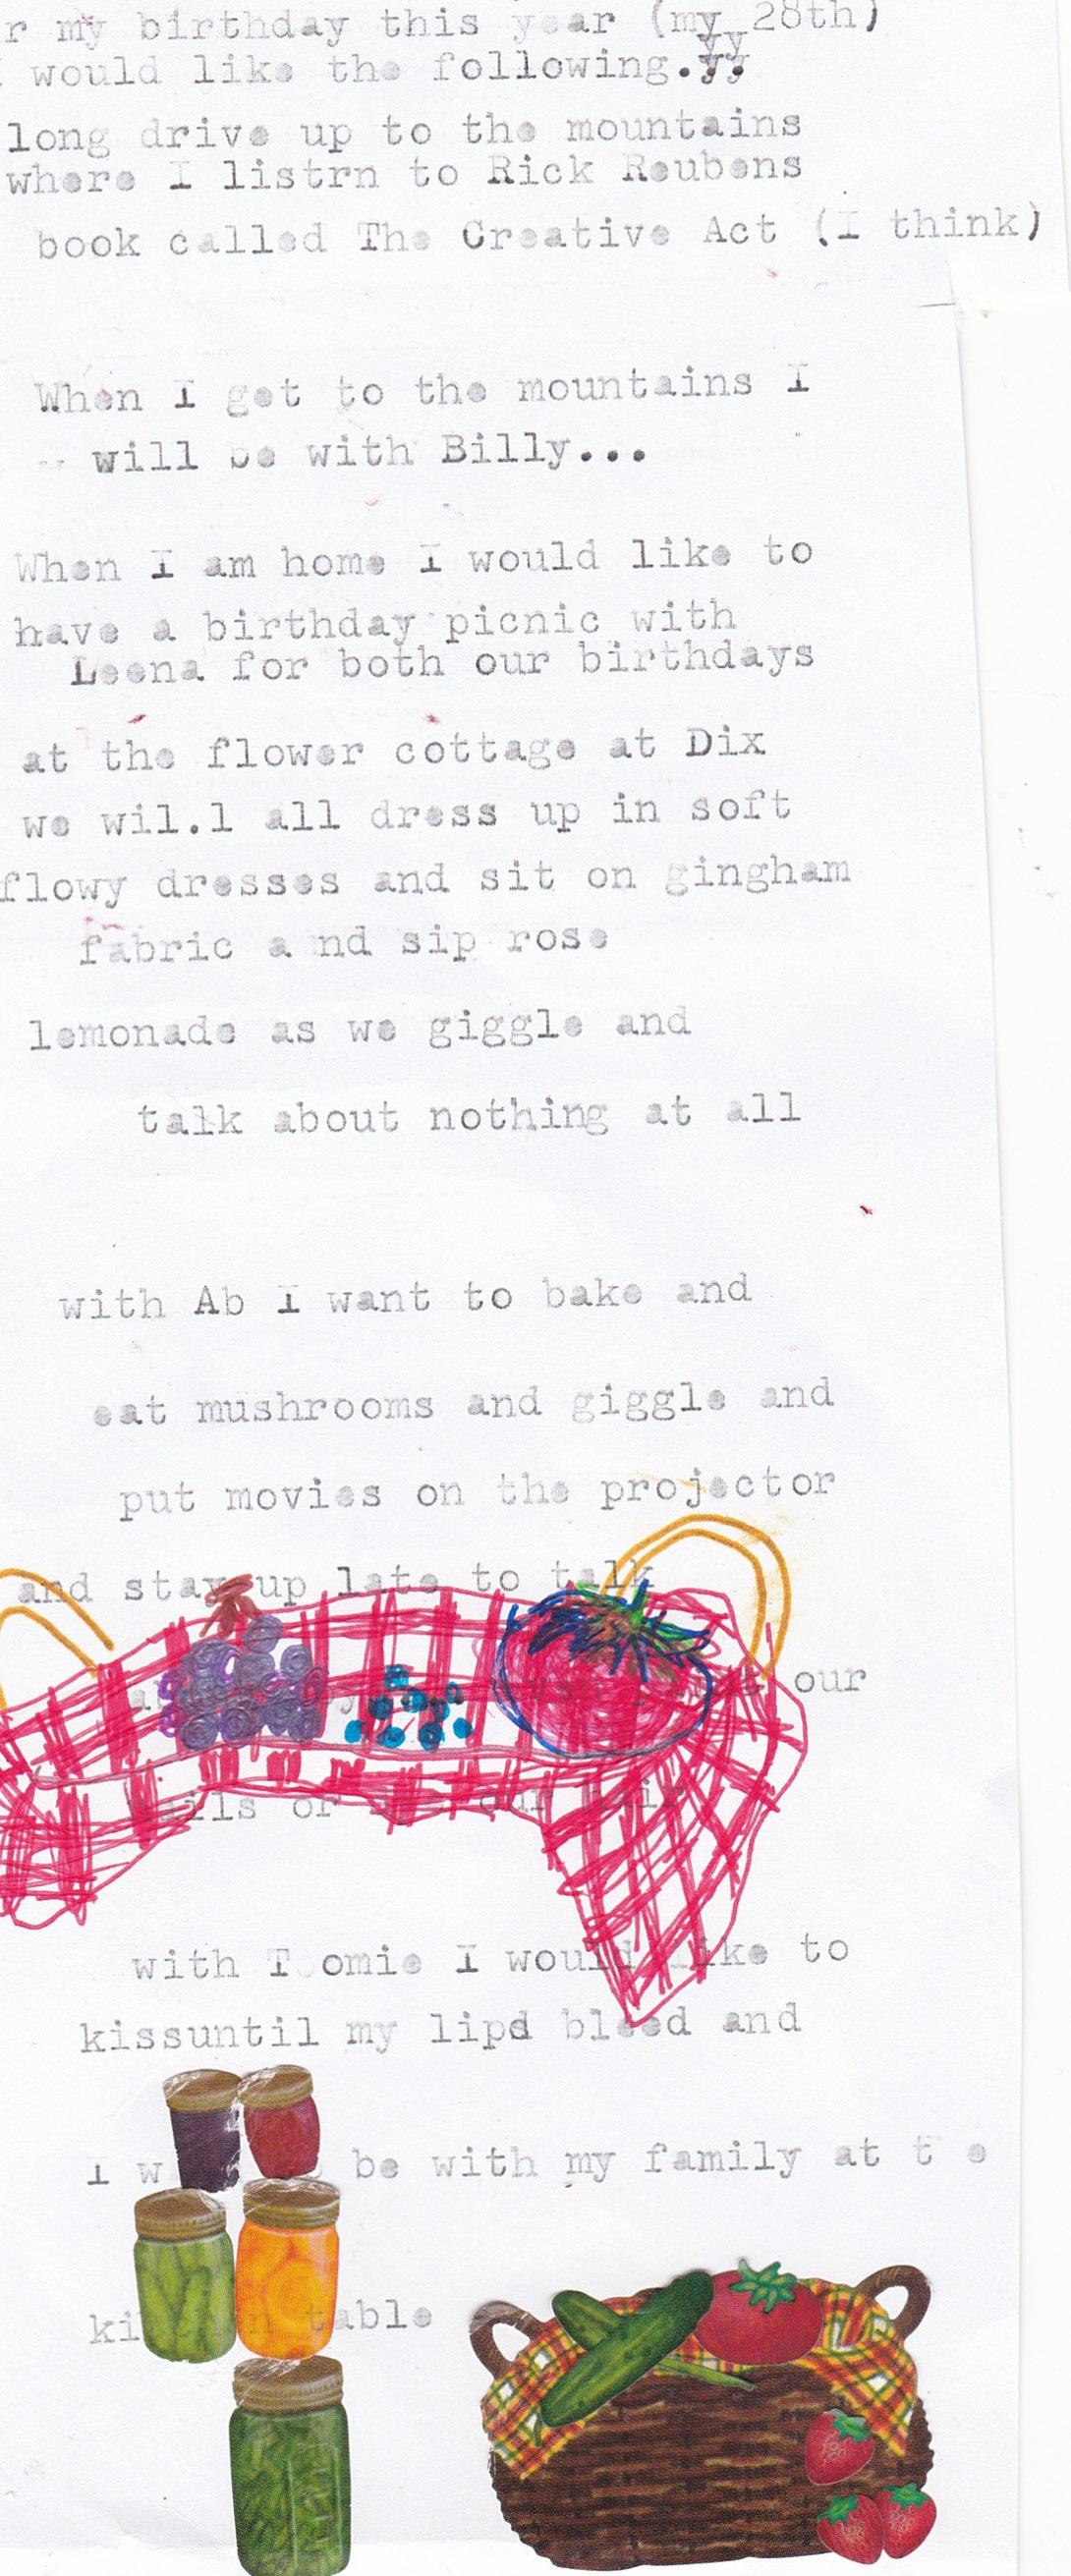 r my birthday this year (my 28th)
yy
I would like the following.yy
long drive up to the mountains
where I listrn to Rick Reubens
book called The Creative Act (I think)
When I get to the mountains I
will be with Billy...
When I am home I would like to
have a birthday picnic with
Leena for both our birthdays
at the flower cottage at Dix
we wil.l all dress up in soft
flowy dresses and sit on gingham
fabric a nd sip rose
lemonade as we giggle and
talk about nothing at all
with Ab I want to bake and
eat mushrooms and giggle and
put movies on the projector
and stay up late to talk
our
or our
with T omie I would like to
kissuntil my lips bleed and
I be with my family at t e
kitchen table